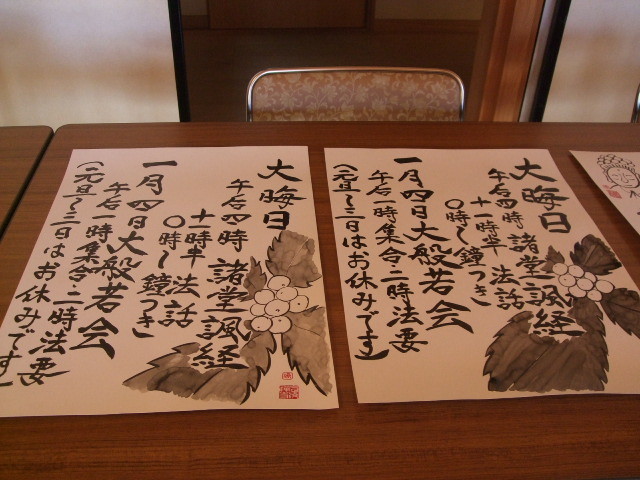 大晦日
午后四時 諸堂諷経
十一時半 法話
〇時〜 鐘つき
一月四日大般若会
午后一時集合・二時法要
(元旦〜三日はお休みです)
大晦日
午后四時 諸堂諷経
十一時半 法話
〇時〜 鐘つき
一月四日大般若会
午后一時集合・二時法要
(元旦〜三日はお休みです)